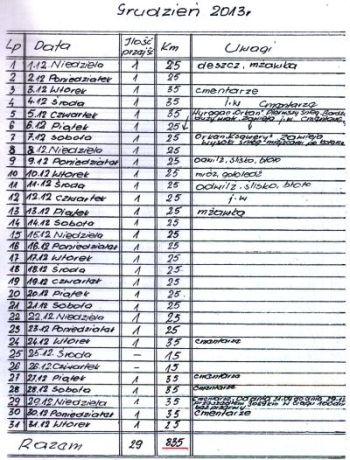 Grudzień 2013r.
Lp Data Ilość przejść Km Uwagi
1 1.12 Niedziela 1 25 deszcz, mżawka
2 2.12 Poniedziałek 1 25
3 3.12 Wtorek 1 35 cmentarze
4 4.12 Środa 1 35 j.w Cmentarze
5 5.12 Czwartek 1 35 Huragan Orkan Pierwszy śnieg
6 6.12 Piątek 1 25
7 7.12 Sobota 1 25 Orkan Zawieja
8 8.12 Niedziela 1 25
9 9.12 Poniedziałek 1 25 odwilż, ślisko, błoto
10 10.12 Wtorek 1 25 mróz, gołoledź
11 11.12 Środa 1 25 odwilż, ślisko, błoto
12 12.12 Czwartek 1 35 j.w
13 13.12 Piątek 1 25 mżawka
14 14.12 Sobota 1 25
15 15.12 Niedziela 1 25
16 16.12 Poniedziałek 1 25
17 17.12 Wtorek 1 25
18 18.12 Środa 1 25
19 19.12 Czwartek 1 25
20 20.12 Piątek 1 25
21 21.12 Sobota 1 25
22 22.12 Niedziela 1 25
23 23.12 Poniedziałek 1 25
24 24.12 Wtorek 1 35 cmentarze
25 25.12 Środa – 15
26 26.12 Czwartek – 15
27 27.12 Piątek 1 35 cmentarze
28 28.12 Sobota 1 35 cmentarze
29 29.12 Niedziela 1 35
30 30.12 Poniedziałek 1 35 cmentarze
31 31.12 Wtorek 1 25
Razem 29 835